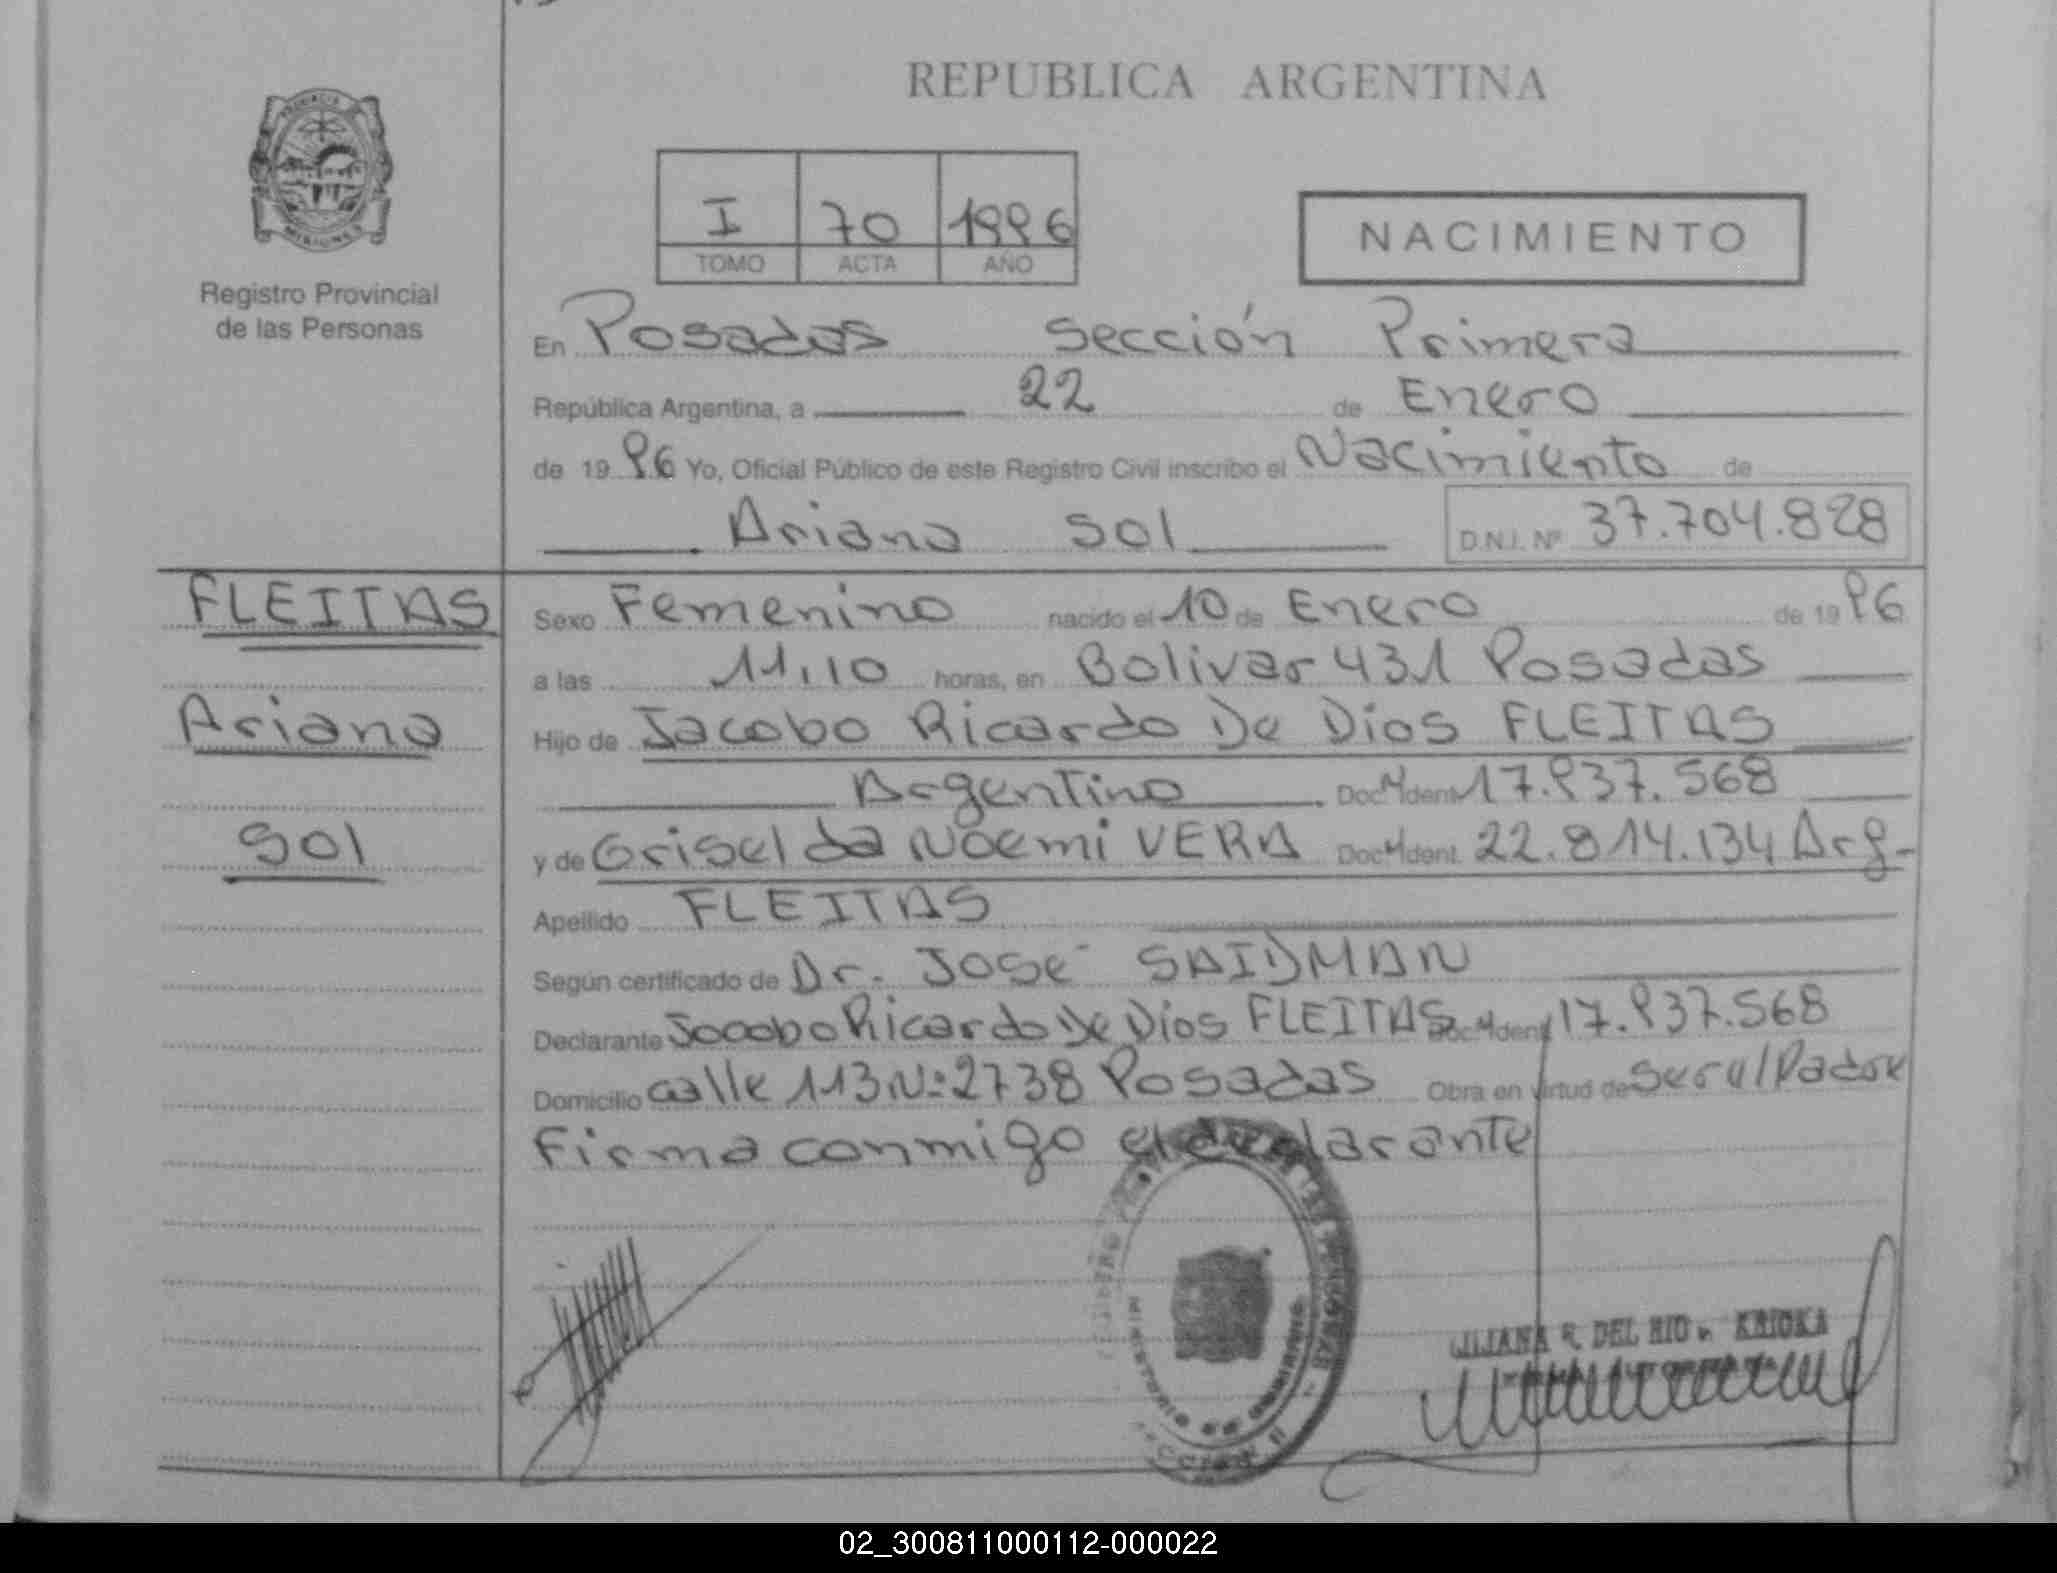 REPUBLICA ARGENTINA
PROVINCIA
MISIONES
Registro Provincial
de las Personas
I 70 1996
TOMO ACTA AÑO
NACIMIENTO
En Posadas Sección Primera
República Argentina, a 22 de Enero
de 1996 Yo, Oficial Público de este Registro Civil inscribo el Nacimiento de
Ariana Sol D.N.I. Nº 37.704.828
FLEITAS
Ariana
Sol
Sexo Femenino nacido el 10 de Enero de 1996
a las 11,10 horas, en Bolivar 431 Posadas
Hijo de Jacobo Ricardo De Dios FLEITAS
Argentino Doc. Ident. 17.937.568
y de Griselda Noemi VERA Doc. Ident. 22.814.134 Arg.
Apellido FLEITAS
Según certificado de Dr. José SAIDMAN
Declarante Jacobo Ricardo De Dios FLEITAS Doc. Ident. 17.937.568
Domicilio calle 113 Nº 2738 Posadas Obra en virtud de ser el Padre
Firma conmigo el declarante
LILIANA R. DEL RIO
02_300811000112-000022